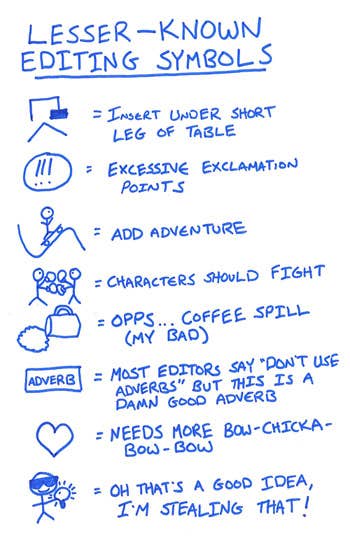 LESSER-KNOWN
EDITING SYMBOLS
= INSERT UNDER SHORT
LEG OF TABLE
!!! = EXCESSIVE EXCLAMATION
POINTS
= ADD ADVENTURE
= CHARACTERS SHOULD FIGHT
= OPPS... COFFEE SPILL
(MY BAD)
ADVERB = MOST EDITORS SAY "DON'T USE
ADVERBS" BUT THIS IS A
DAMN GOOD ADVERB
= NEEDS MORE BOW-CHICKA-
BOW-BOW
= OH THAT'S A GOOD IDEA,
I'M STEALING THAT!